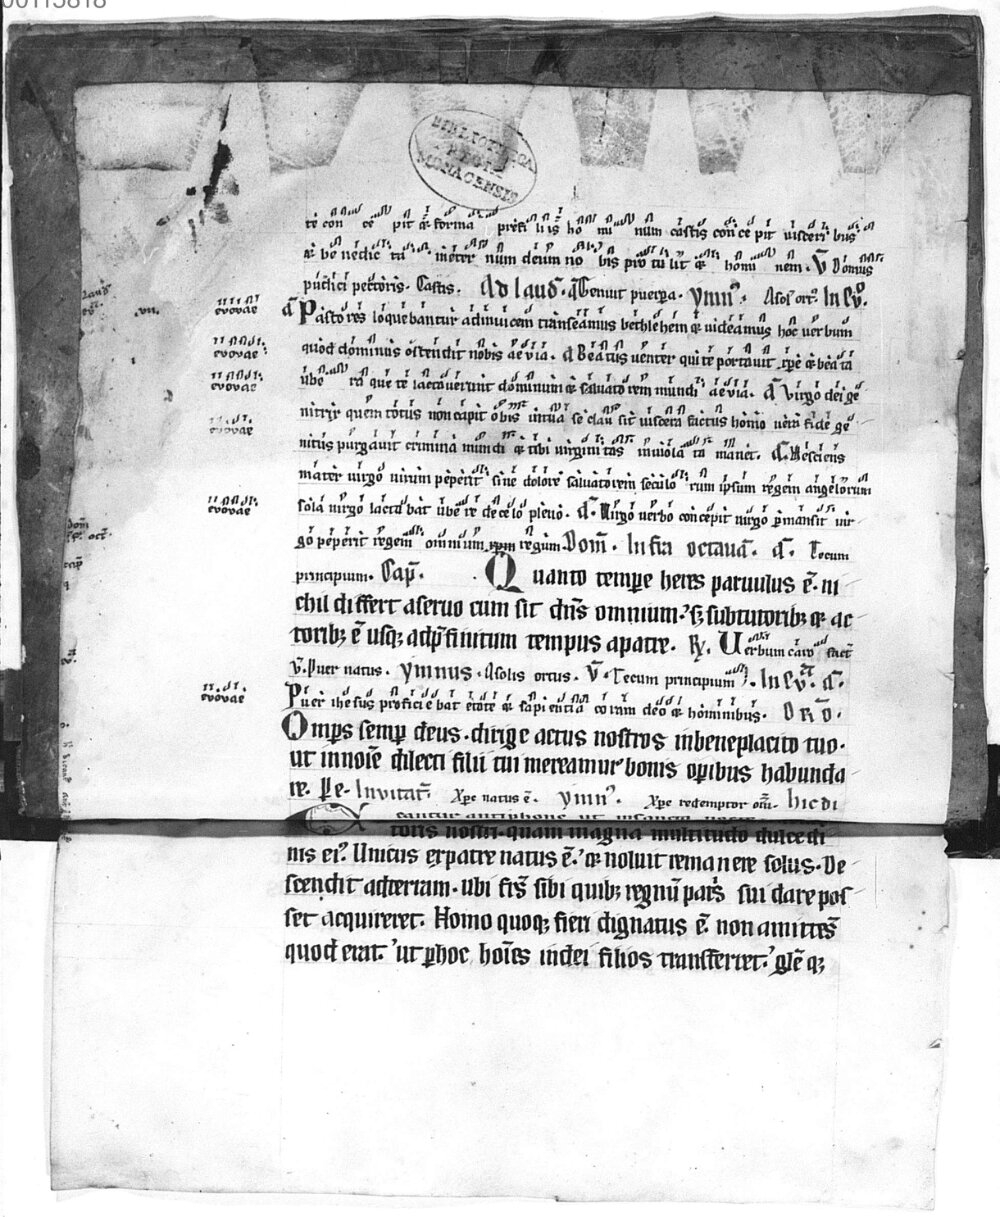 00115818
BIBLIOTHECA
REGIA
MONACENSIS
te con ce pit & forma presti tis ho mi num castis con ce pit visceri bus
& be nedic ta mater num deum no bis pro tu lit & homi nem. V Domus
pudici pectoris. Castis. Ad laud. a Genuit puerpa. ymn. Asol ort. In Ev.
evovae a Pastores loquebantur adinvicem transeamus bethlehem & videamus hoc verbum
evovae quod dominus ostendit nobis aevia. a Beatus venter qui te portavit xpe & beata
evovae ube ra que te lactaverunt dominum & salvatorem mundi aevia. a Virgo dei ge
evovae nitrix quem totus non capit orbis in tua se clau sit viscera factus homo vera fides ge
nitus purgavit crimina mundi & tibi virginitas inviola ta manet. a. Nesciens
evovae mater virgo virum peperit sine dolore salvatorem seculo rum ipsum regem angelorum
sola virgo lacta bat ube re de celo pleno. a. Virgo verbo concepit virgo pmansit vir
go peperit regem omnium regum Dom. Infra octava. a. Tecum
principium. Cap. Quanto tempe heres parvulus e. ni
chil differt aservo cum sit dns omnium. s; subtutorib; & ac
torib; e usq; adpfinitum tempus apatre. R. Verbum caro fact
V. Puer natus. ymnus. Asolis ortus. V. Tecum principium. In Ev. a.
evovae Puer ihesus proficie bat etate & sapientia coram deo & hominibus. Oro.
Omps semp deus. dirige actus nostros inbeneplacito tuo.
ut innoie dilecti filii tui mereamur bonis opibus habunda
re. Pe. Invitat Xpe natus e. ymn. Xpe redemptor om. hic di
cantur antiphone ut
toris nostri. quam magna multitudo dulcedi
nis ei. Unicus expatre natus e. & noluit remanere solus. De
scendit adterram. ubi frs sibi quib; regnu patris sui dare pos
set acquireret. Homo quoq; fieri dignatus e. non amittes
quod erat. ut phoc hoies indei filios transferret. gle q;